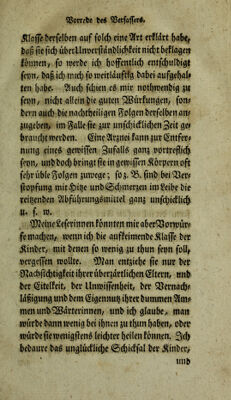 Vorrede des Verfassers.
Klasse derselben auf solch eine Art erklärt habe,
daß sie sich über Unverständlichkeit nicht beklagen
können, so werde ich hoffentlich entschuldigt
seyn, daß ich mich so weitläuftig dabei aufgehal-
ten habe. Auch schien es mir nothwendig zu
seyn, nicht allein die guten Würkungen, son-
dern auch die nachtheiligen Folgen derselben an-
zugeben, im Falle sie zur unschicklichen Zeit ge-
braucht werden. Eine Arznei kann zur Entfer-
nung eines gewissen Zufalls ganz vortreflich
seyn, und doch bringt sie in gewissen Körpern oft
sehr üble Folgen zuwege; so z. B. sind bei Ver-
stopfung mit Hitze und Schmerzen im Leibe die
reitzenden Abführungsmittel ganz unschicklich
u. s. w.
Meine Leserinnen könnten mir aber Vorwür-
fe machen, wenn ich die aufkeimende Klasse der
Kinder, mit denen so wenig zu thun seyn soll,
vergessen wollte. Man entziehe sie nur der
Nachsichtigkeit ihrer überzärtlichen Eltern, und
der Eitelkeit, der Unwissenheit, der Vernach-
läßigung und dem Eigennutz ihrer dummen Am-
men und Wärterinnen, und ich glaube, man
würde dann wenig bei ihnen zu thun haben, oder
würde sie wenigstens leichter heilen können. Ich
bedaure das unglückliche Schicksal der Kinder,
und